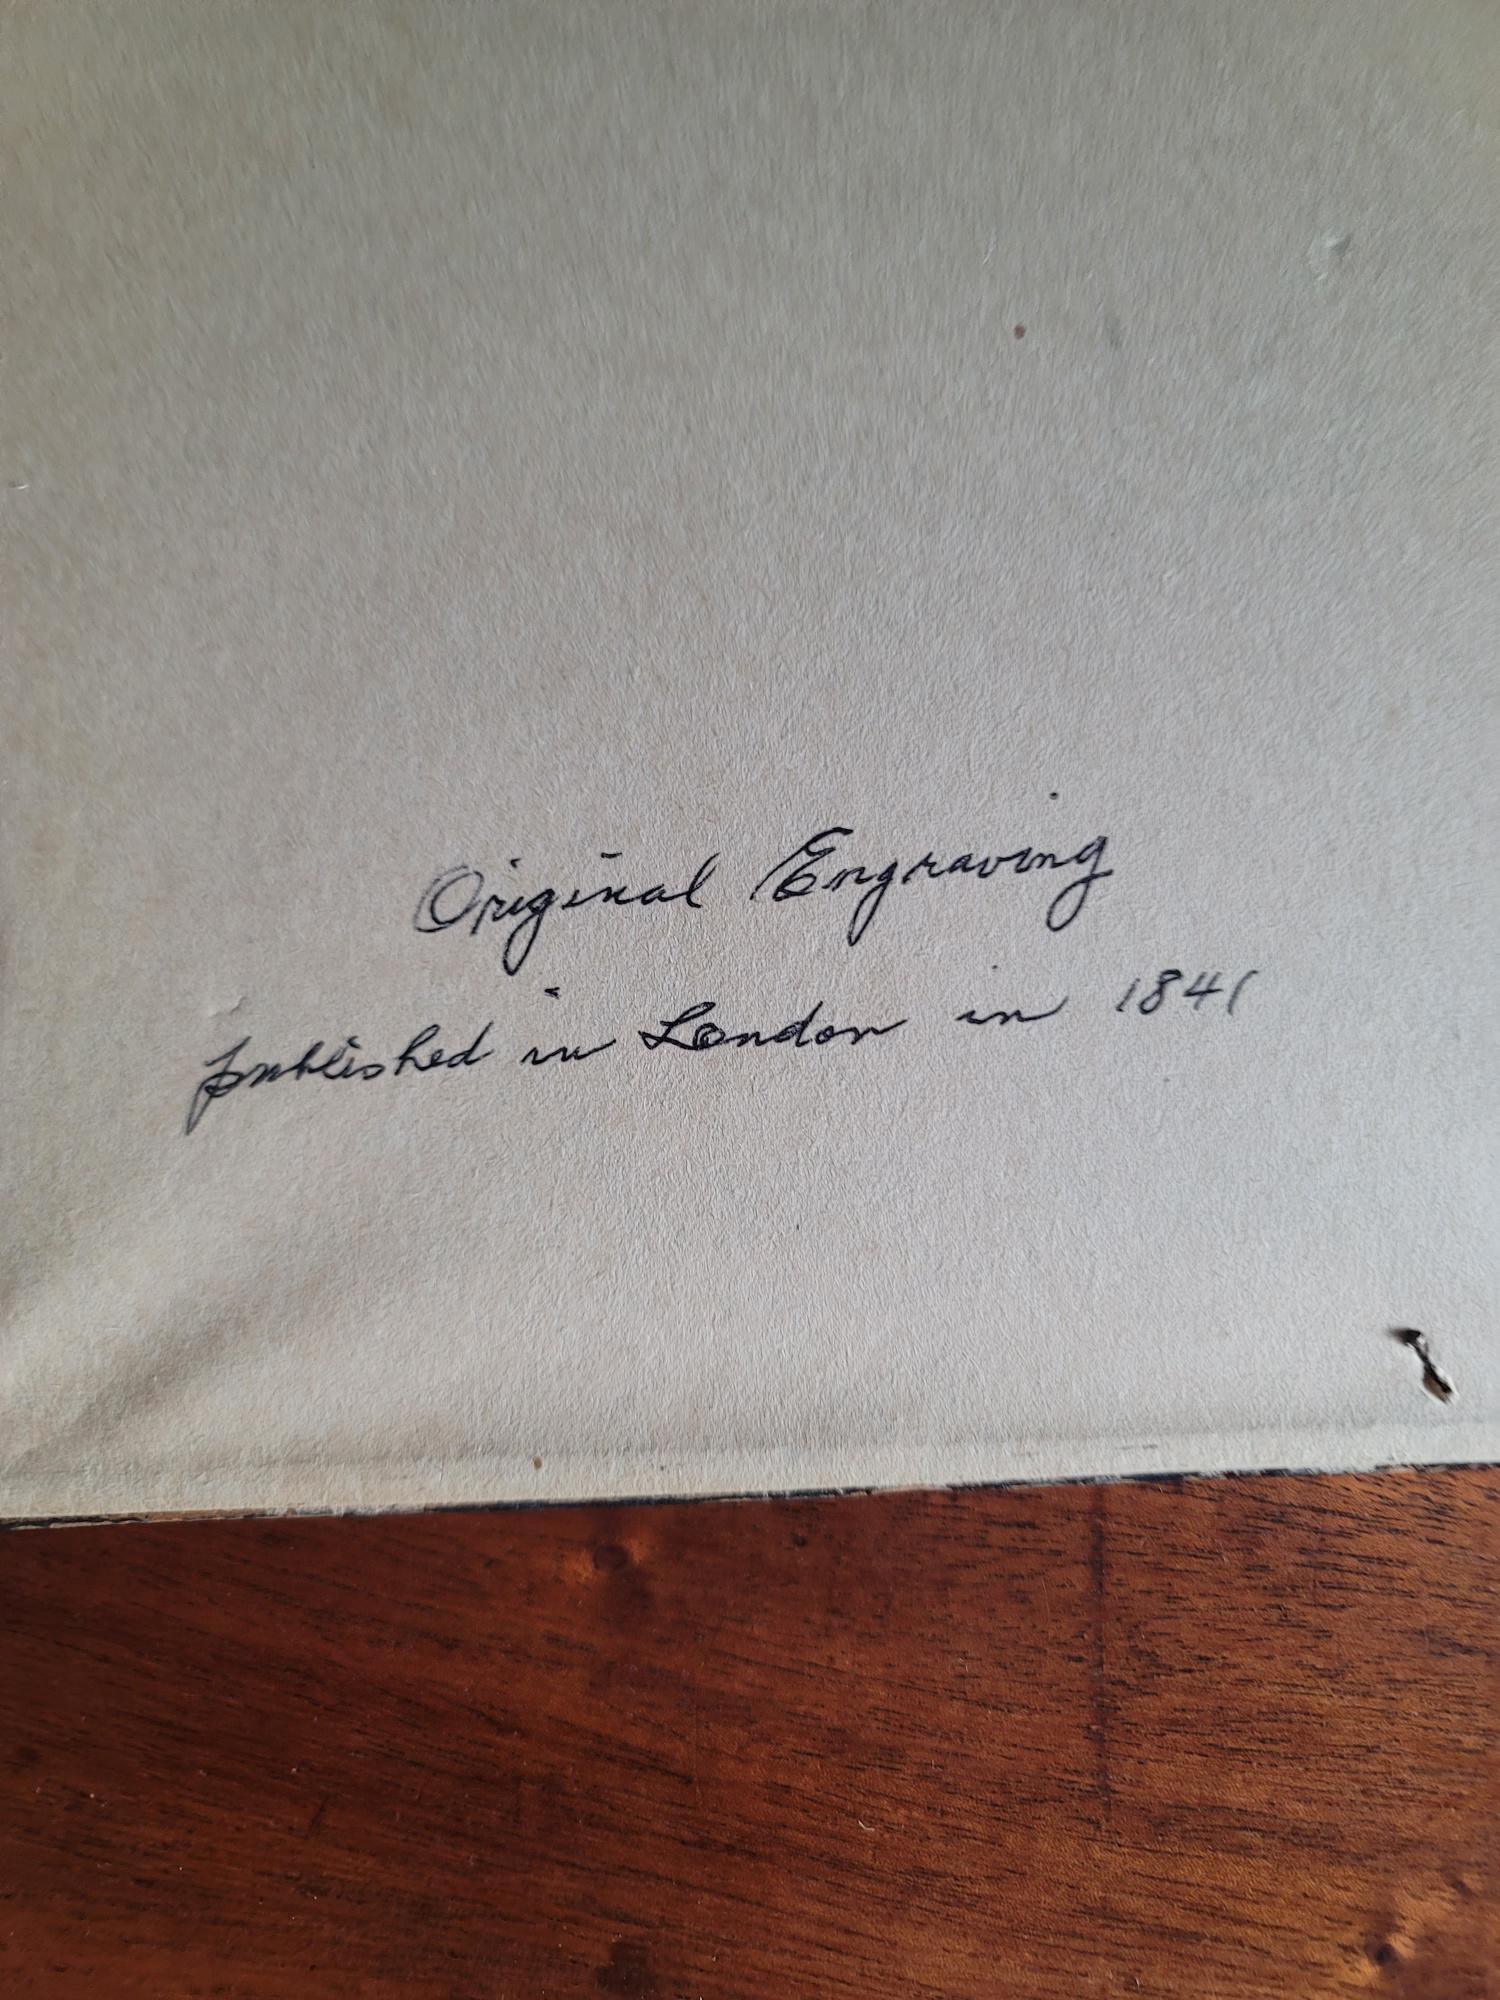 Original Engraving
published in London in 1841